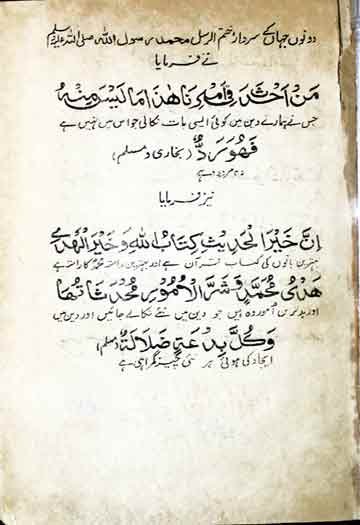 دونوں جہاں کے سردار ختم الرسل محمد رسول اللہ صلی اللہ علیہ وسلم
نے فرمایا
مَنْ اَحْدَثَ فِیْ اَمْرِنَا هٰذَا مَا لَیْسَ مِنْهُ
جس نے ہمارے دین میں کوئی ایسی بات نکالی جو اس میں نہیں ہے
فَهُوَ رَدٌّ (بخاری و مسلم)
وہ مردود ہے
نیز فرمایا
اِنَّ خَیْرَ الْحَدِیْثِ کِتَابُ اللهِ وَخَیْرَ الْهَدْیِ
بہترین باتوں کی کتاب قرآن ہے اور بہترین راستہ محمدؐ کا راستہ ہے
هَدْیُ مُحَمَّدٍ وَشَرَّ الْاُمُوْرِ مُحْدَثَاتُهَا
اور بدترین امور وہ ہیں جو دین میں نئے نکالے جائیں اور دین میں
وَکُلَّ بِدْعَةٍ ضَلَالَةٌ (مسلم)
ایجاد کی ہوئی ہر نئی چیز گمراہی ہے